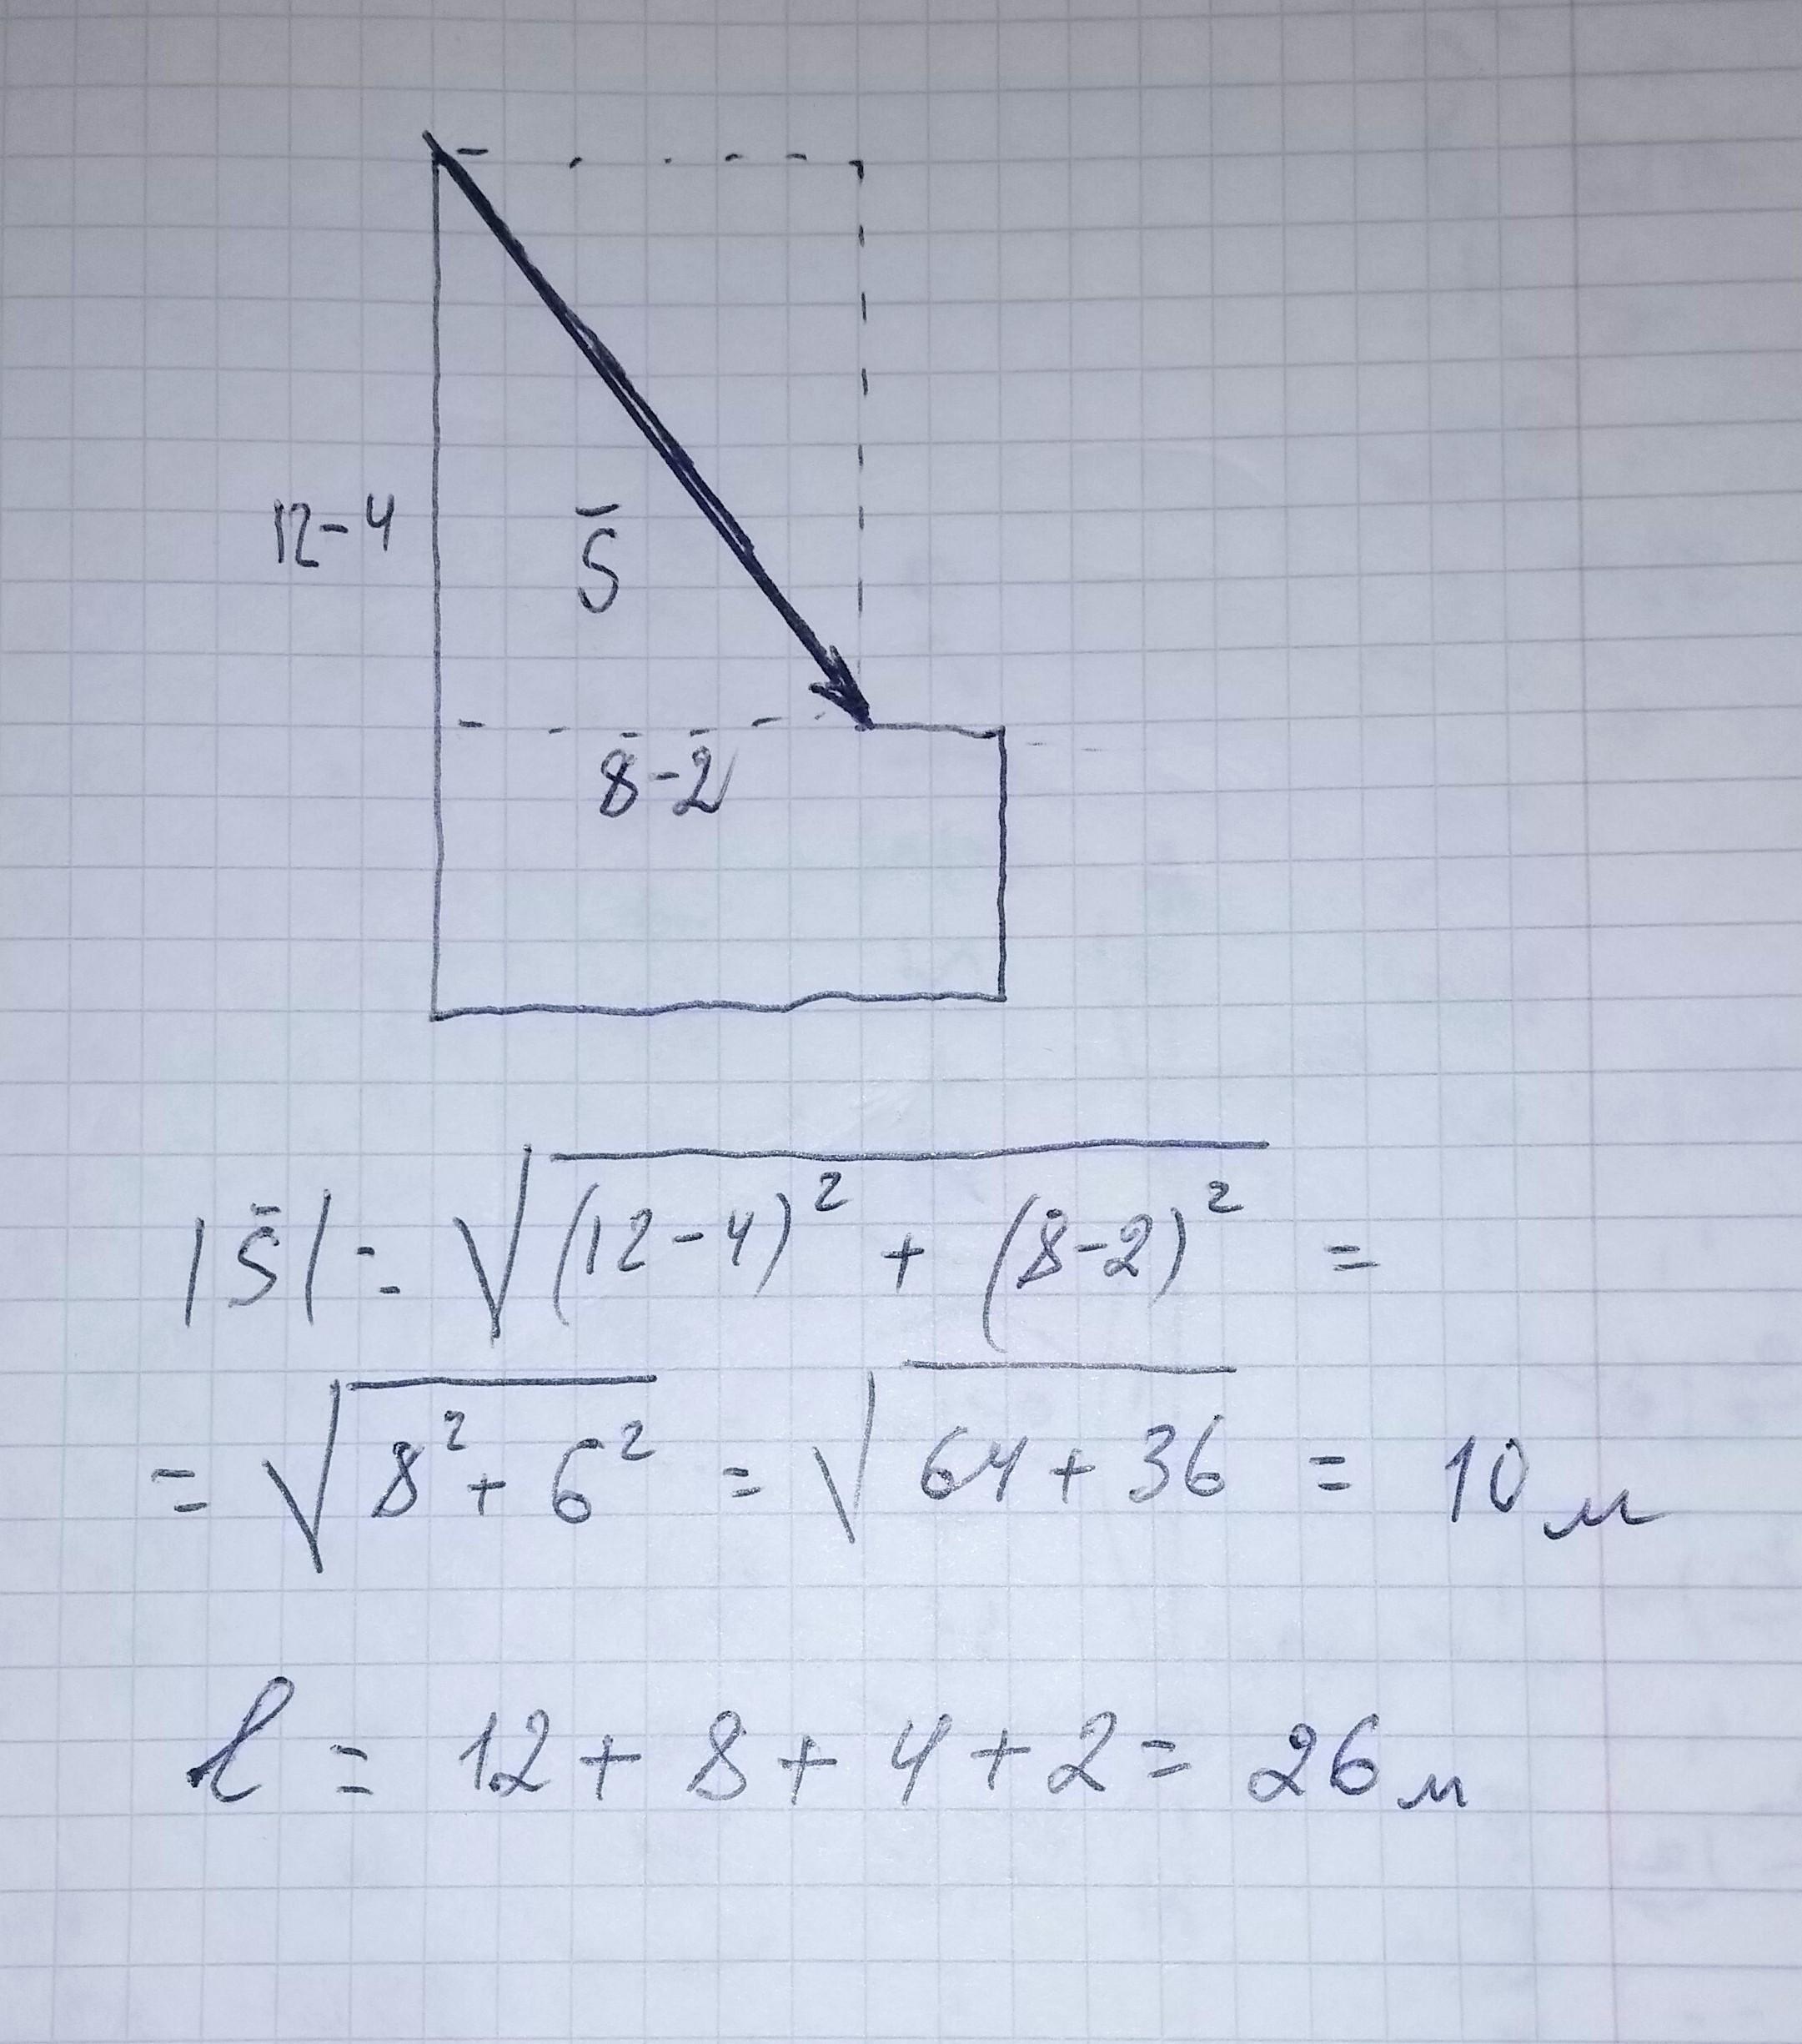 12-4
S̄
8-2
|S̄| = √(12-4)² + (8-2)² =
= √8² + 6² = √64 + 36 = 10 м
ℓ = 12 + 8 + 4 + 2 = 26 м